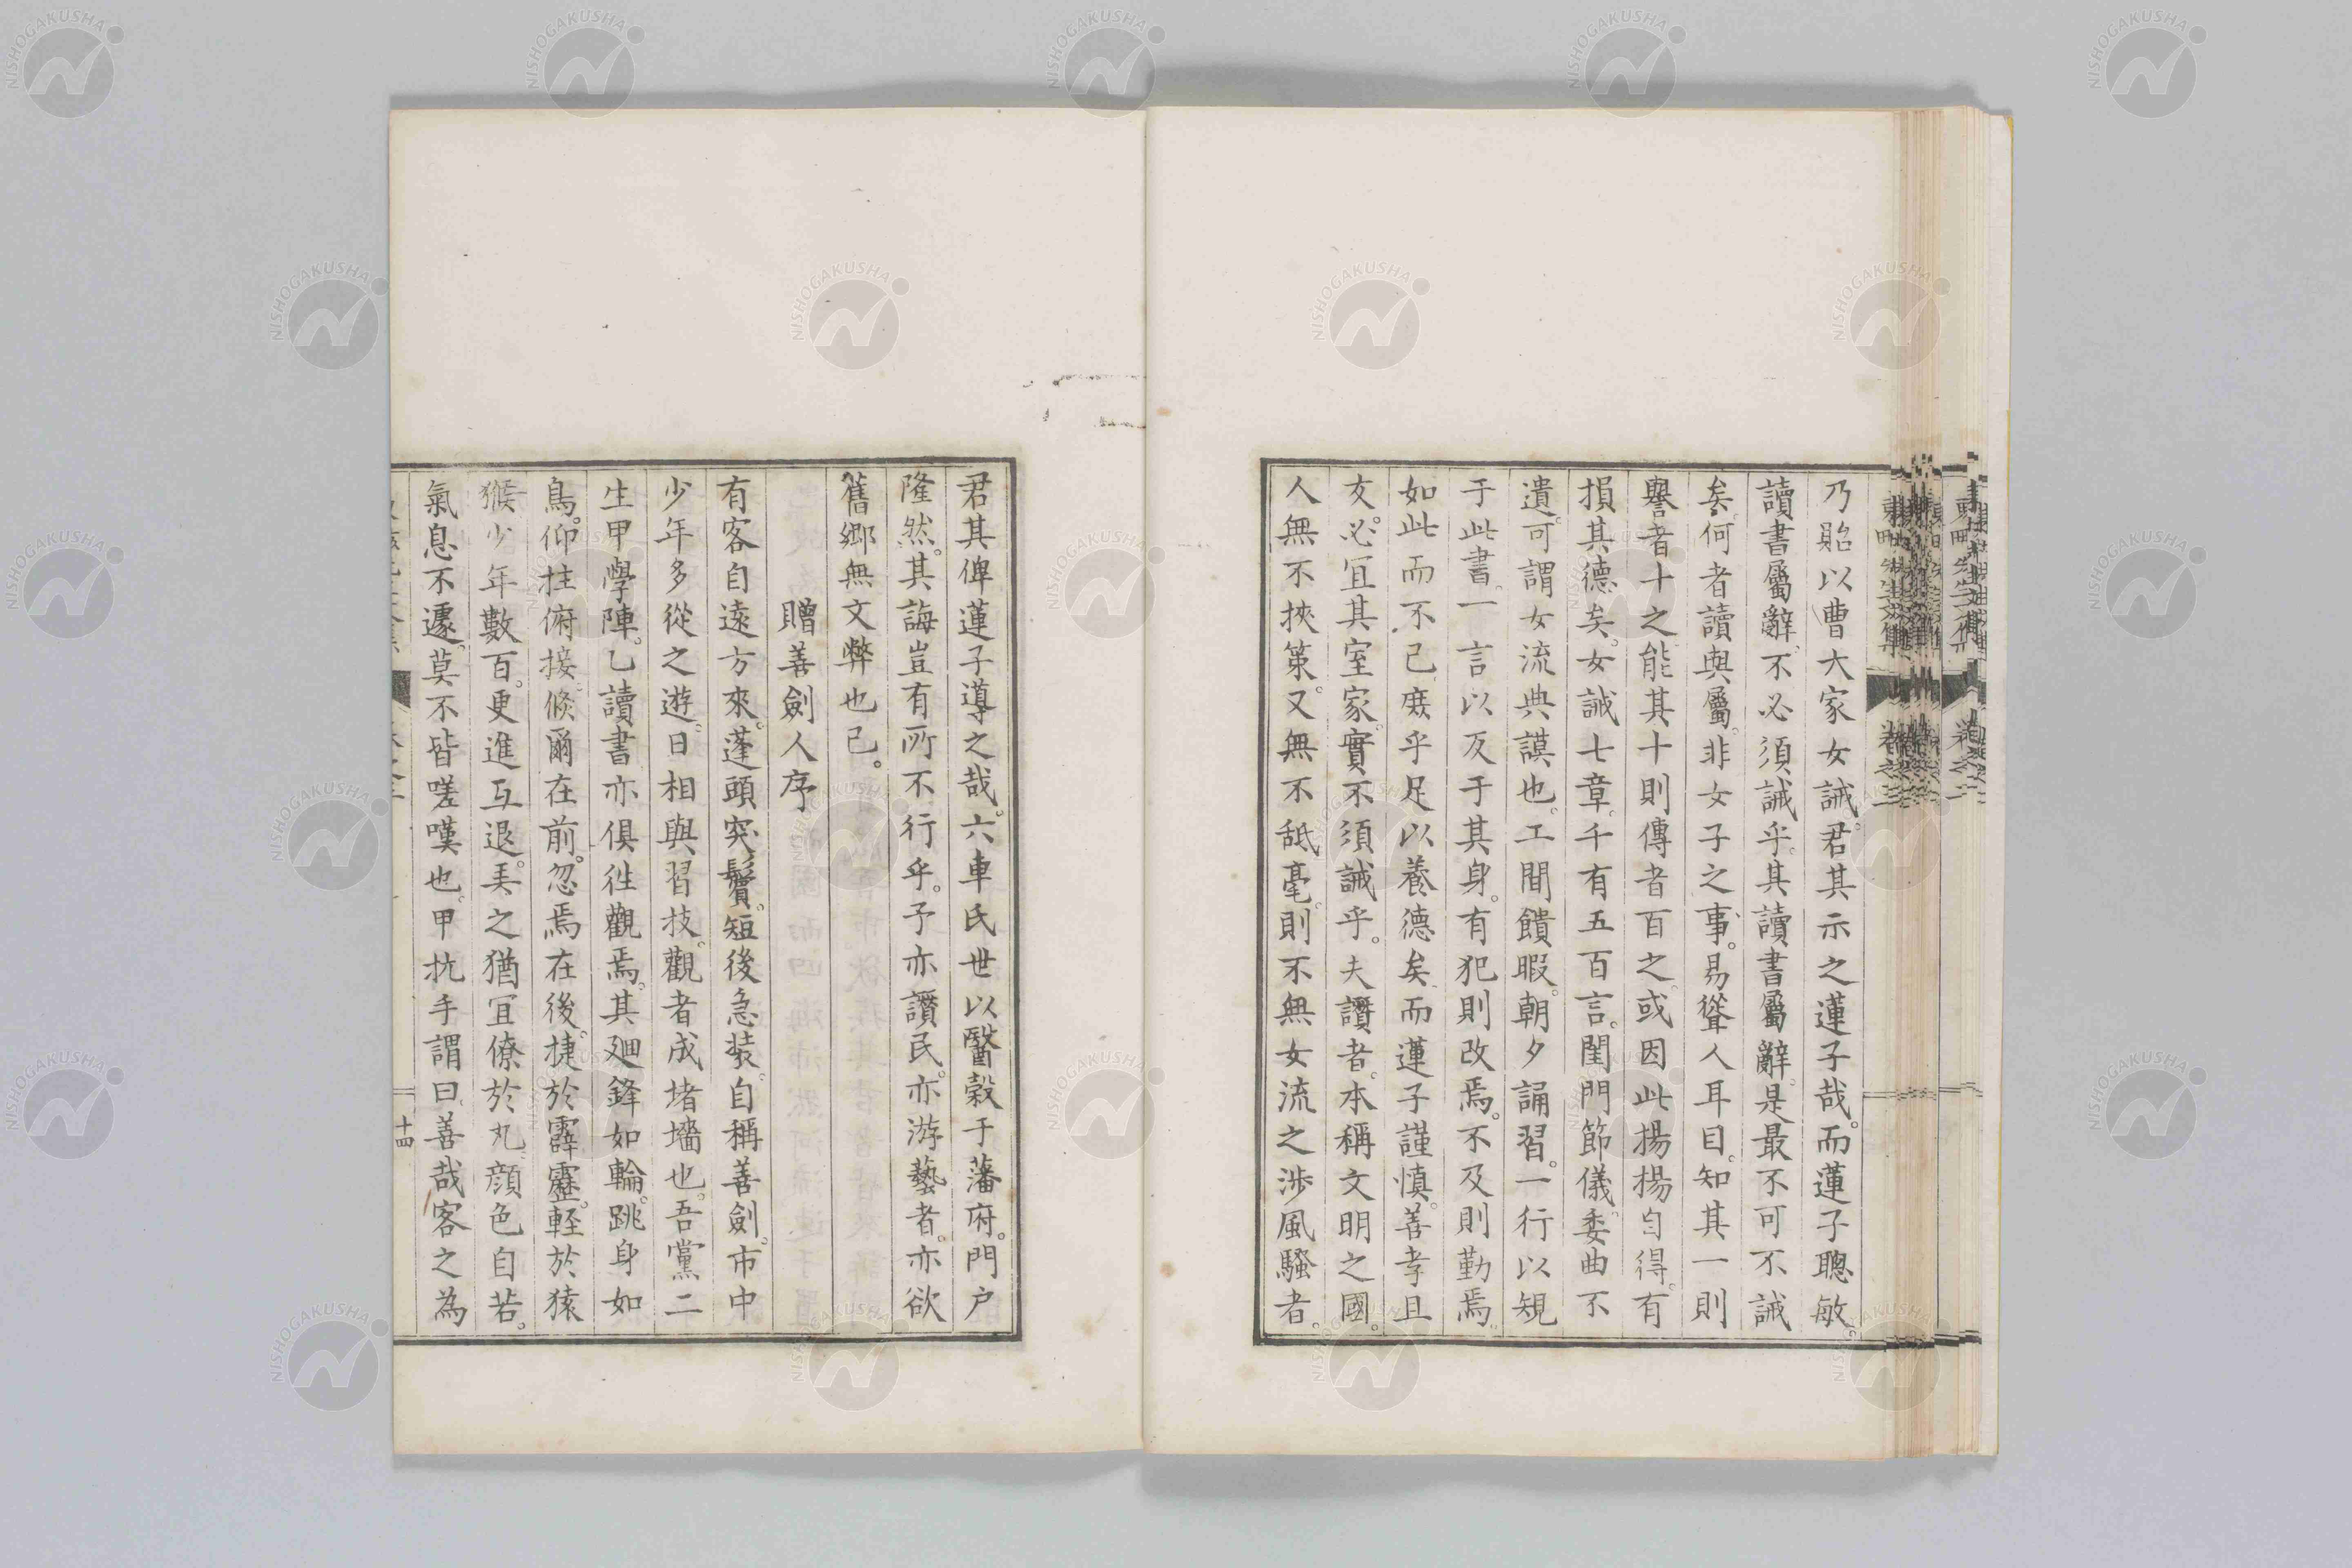 乃貽以曹大家女誡。君其示之蓮子哉。而蓮子聰敏。
讀書屬辭。不必須誡乎。其讀書屬辭。是最不可不誡
矣。何者讀與屬。非女子之事。易聳人耳目。知其一則
譽者十之。能其十則傳者百之。或因此揚揚自得。有
損其德矣。女誡七章。千有五百言。閨門節儀。委曲不
遺。可謂女流典謨也。工間饋暇。朝夕誦習。一行以規
于此書。一言以及于其身。有犯則改焉。不及則勤焉。
如此而不已。庶乎足以養德矣。而蓮子謹慎。善孝且
友。必宜其室家。實不須誡乎。夫讚者。本稱文明之國。
人無不挾策。又無不舐毫。則不無女流之涉風騷者。
君其俾蓮子導之哉。六車氏世以醫穀于藩府。門戶
隆然。其誨豈有所不行乎。予亦讚民。亦游藝者。亦欲
舊鄉無文弊也已。
贈善劍人序
有客自遠方來。蓬頭突鬢。短後急裝。自稱善劍。市中
少年多從之遊。日相與習技。觀者成堵墻也。吾黨二
生甲學陣。乙讀書亦俱徃觀焉。其廻鋒如輪。跳身如
鳥。仰拄俯接。倐爾在前。忽焉在後。捷於霹靂。輕於猿
猴。少年數百。更進互退。弄之猶宜僚於丸。顏色自若。
氣息不遽。莫不皆嗟嘆也。甲抗手謂曰。善哉客之為
十四
NISHOGAKUSHA